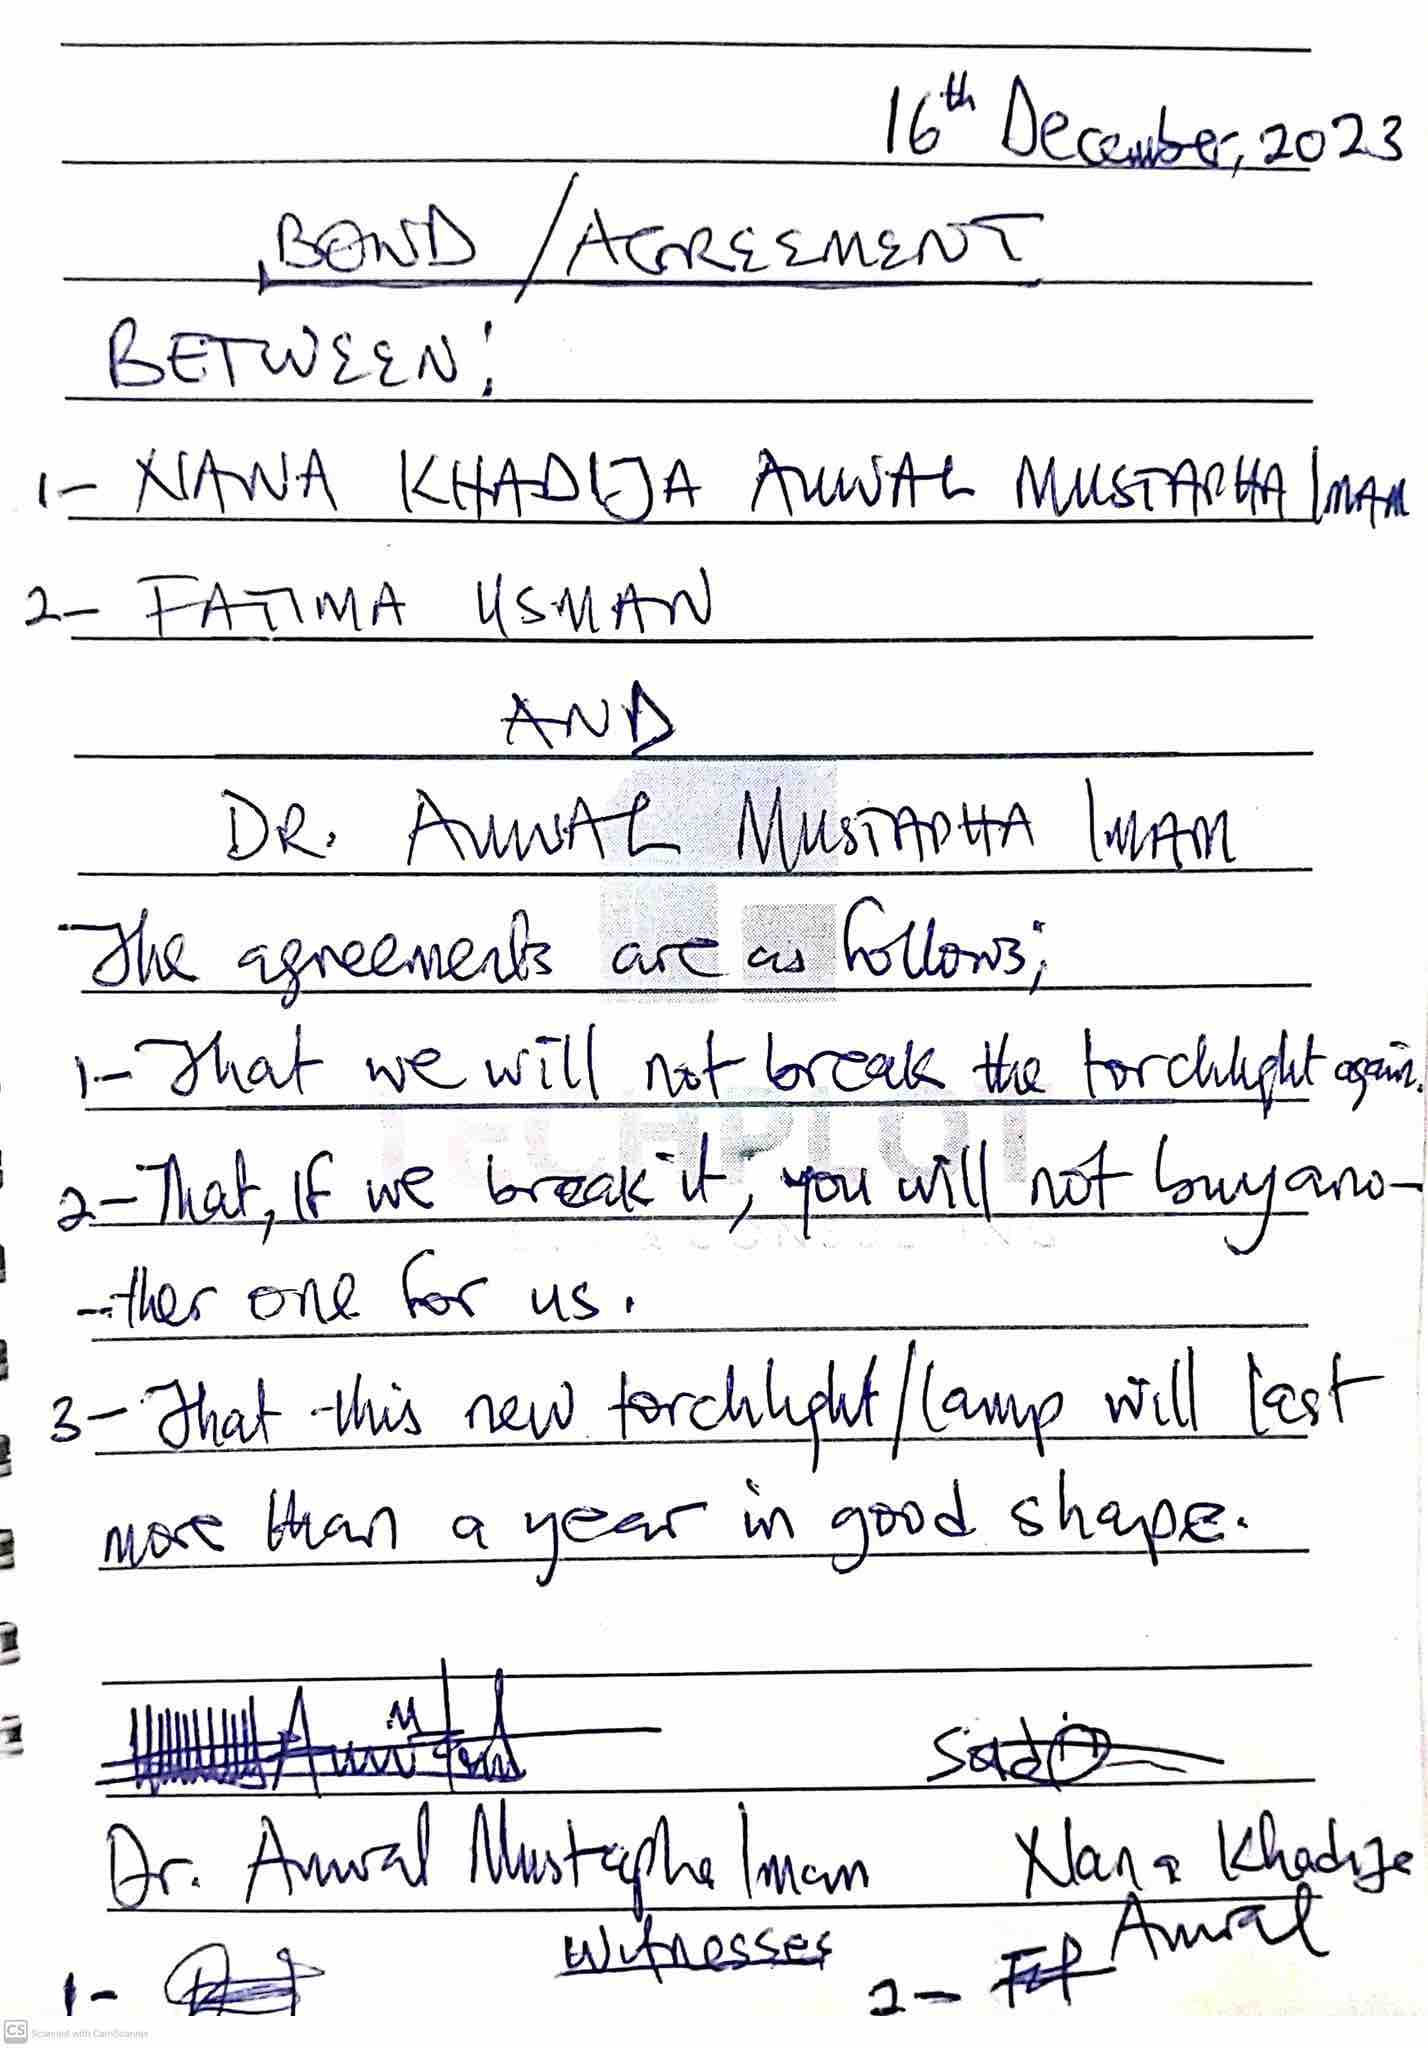 16th December, 2023
BOND / AGREEMENT
BETWEEN:
1- NANA KHADIJA AUWAL MUSTAPHA IMAM
2- FATIMA USMAN
AND
DR. AUWAL MUSTAPHA IMAM
The agreements are as follows;
1- That we will not break the torchlight again.
2- That, if we break it, you will not buy ano-
-ther one for us.
3- That this new torchlight/lamp will last
more than a year in good shape.
Dr. Auwal Mustapha Imam Nana Khadija
Auwal
Witnesses
1- 2-
TECHPLOT
CS Scanned with CamScanner